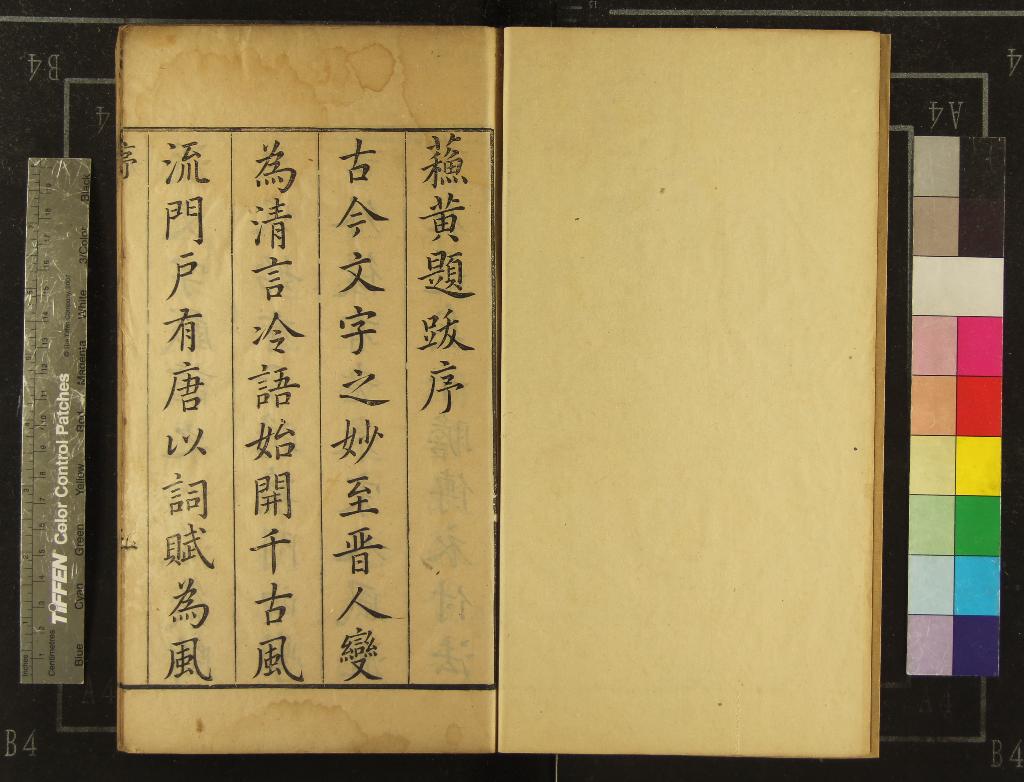 蘓黄題跋序
古今文字之妙至晋人變
為清言冷語始開千古風
流門戸有唐以詞賦為風
序
B4
A4
4
4
B4
B4
TIFFEN Color Control Patches
© The Tiffen Company, 2007
Inches
Centimetres
Blue
Cyan
Green
Yellow
Red
Magenta
White
3/Color
Black